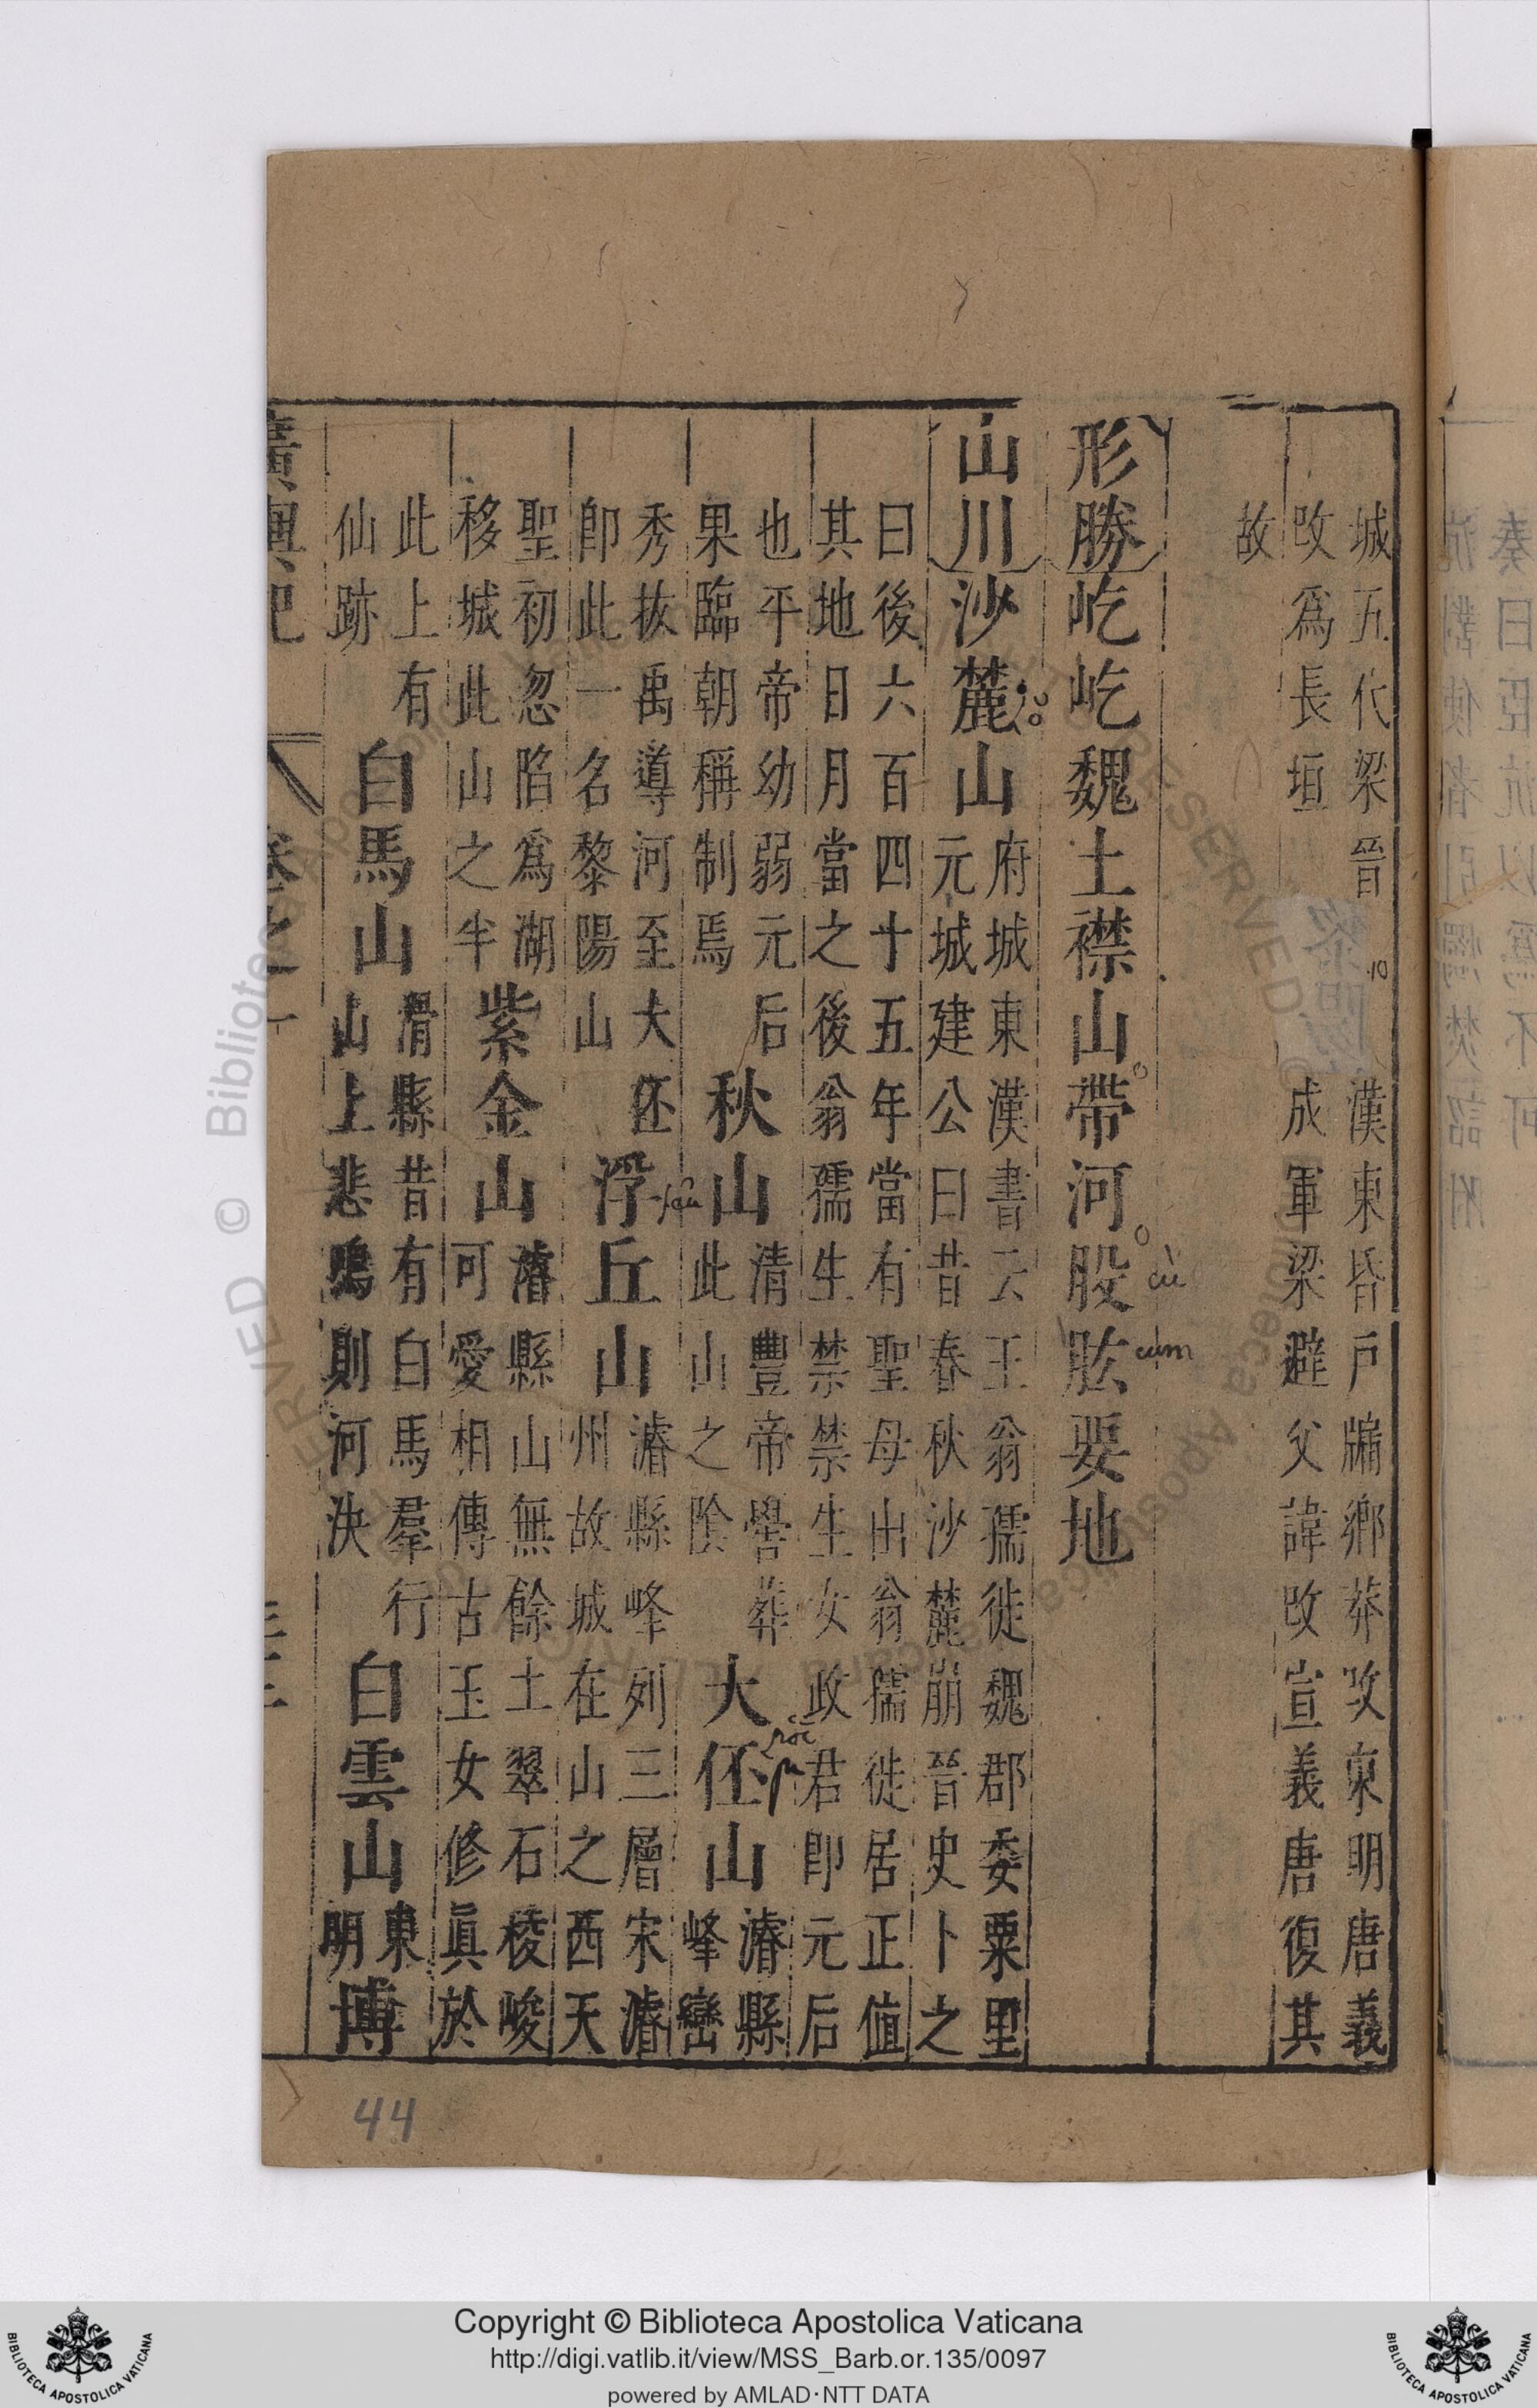 城五代梁晉
改爲長垣
漢東昏戶牖鄉莽改東明唐義
成軍梁避父諱改宣義唐復其
故
形勝
屹屹魏土襟山帶河股肱要地
山川
沙麓山
府城東漢書云王翁孺徙魏郡委粟里
元城建公曰昔春秋沙麓崩晉史卜之
曰後六百四十五年當有聖母出翁孺徙居正值
其地日月當之後翁孺生禁禁生女政君卽元后
也平帝幼弱元后
果臨朝稱制焉
秋山
清豐帝嚳葬
此山之陰
大伾山
濬縣
峰巒
秀拔禹導河至大伾
卽此一名黎陽山
浮丘山
濬縣峰列三層宋濬
州故城在山之西天
聖初忽陷爲湖
移城此山之半
紫金山
濬縣山無餘土翠石稜峻
可愛相傳古玉女修眞於
此上有
仙跡
白馬山
滑縣昔有白馬羣行
山上悲鳴則河決
白雲山
東
明
博
廣輿記
卷之一
cù
cum
44
Copyright © Biblioteca Apostolica Vaticana
http://digi.vatlib.it/view/MSS_Barb.or.135/0097
powered by AMLAD·NTT DATA